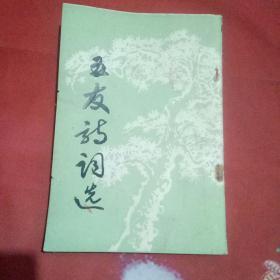 五友诗词选